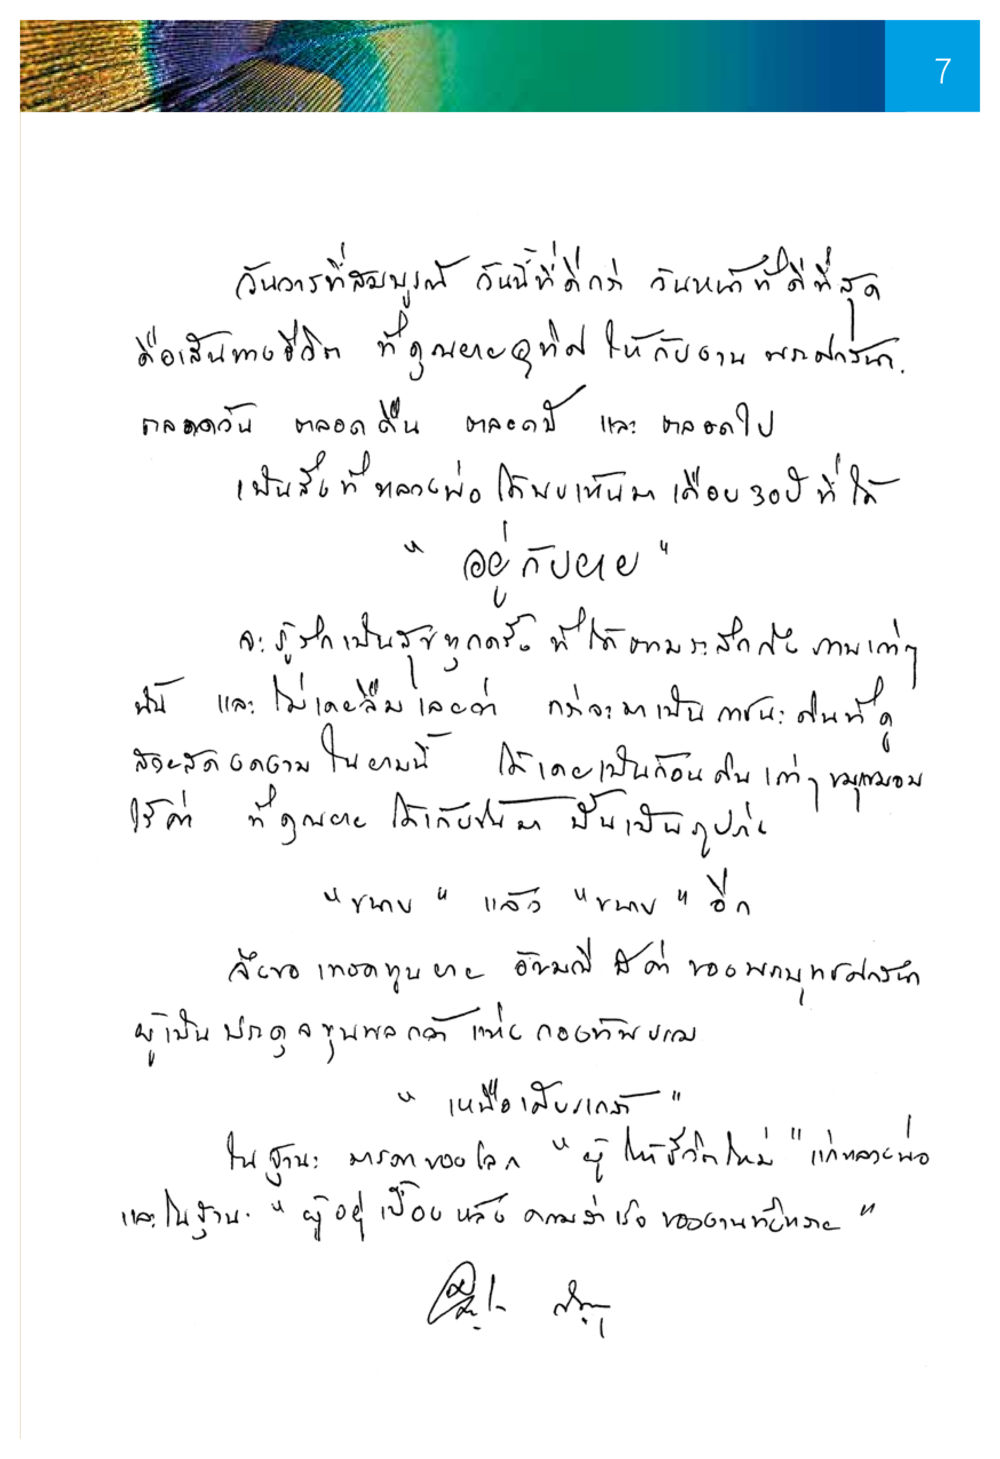 7
วันวารที่สมบูรณ์ วันนี้ที่ดีกว่า วันหน้าที่ดีที่สุด
คือเส้นทางชีวิต ที่คุณยายอุทิศ ให้กับงาน พระศาสนา.
ตลอดวัน ตลอดคืน ตลอดปี และ ตลอดไป
เป็นสิ่งที่ หลวงพ่อ ได้พบเห็นมา เกือบ 30 ปี ที่ได้
" อยู่กับยาย "
จะรู้สึกเป็นสุขทุกครั้ง ที่ได้ตามระลึกถึง ภาพเก่าๆ
นั้น และ ไม่เคยลืมเลยว่า กว่าจะมาเป็น ภาชนะดินที่ดู
สวยสด งดงาม ในยามนี้ ได้เคยเป็นก้อนดิน เก่าๆ ขมุกขมอม
ไร้ค่า ที่คุณยาย ได้เก็บขึ้นมา ปั้นเป็นรูปร่าง
"ขนาบ" แล้ว "ขนาบ" อีก
จึงขอ เทอดทูนยาย อัญมณี มีค่า ของพระพุทธศาสนา
ผู้เป็น ประดุจขุนพลกล้า แห่ง กองทัพธรรม
" เหนือเศียรเกล้า "
ในฐานะ มารดาของโลก "ผู้ให้ชีวิตใหม่" แก่หลวงพ่อ
และในฐานะ "ผู้อยู่เบื้องหลัง ความสำเร็จ ของงานทั้งหลาย"